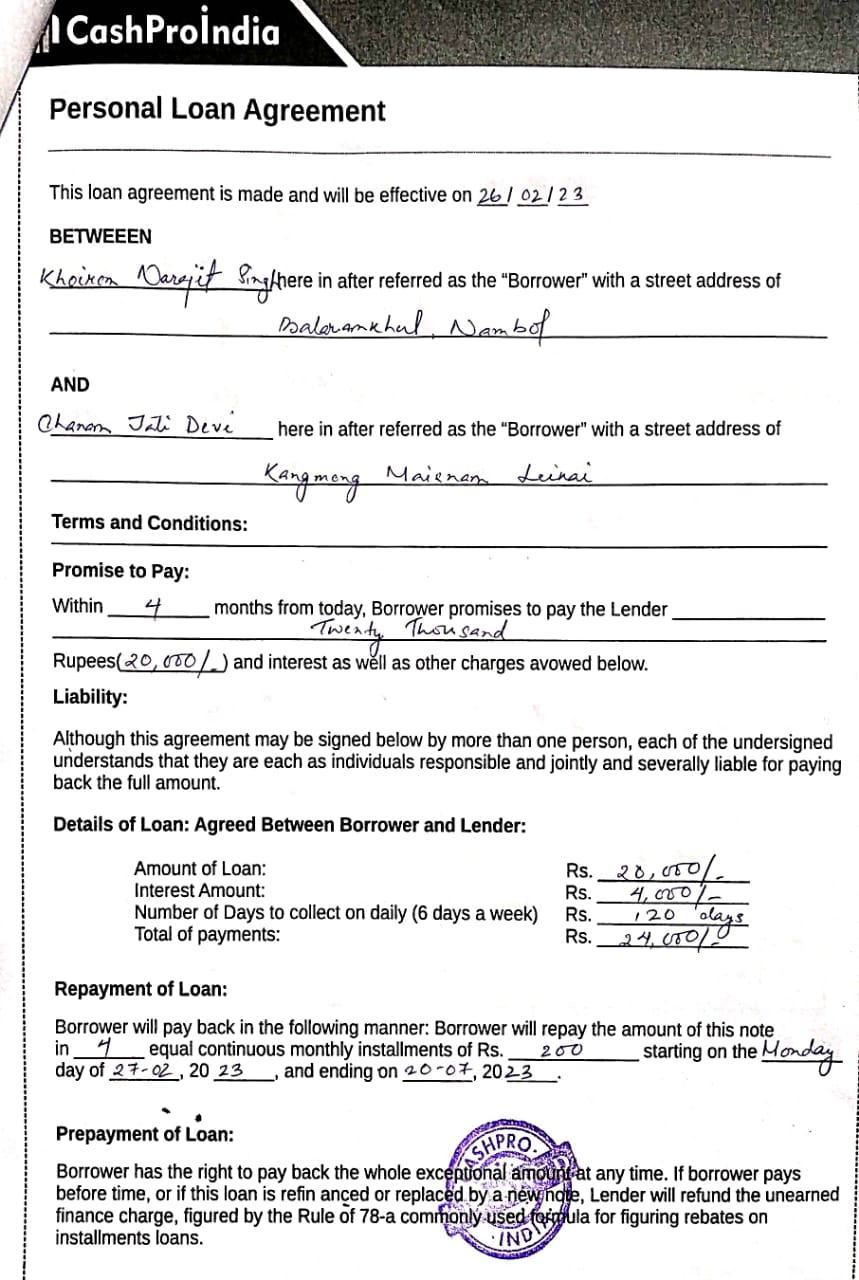 CashProIndia
Personal Loan Agreement
This loan agreement is made and will be effective on 26/02/23
BETWEEEN
Khoirom Narajit Singh here in after referred as the “Borrower” with a street address of
Balaramkhul, Nambol
AND
Chanam Jati Devi here in after referred as the “Borrower” with a street address of
Kangmong Maisnam Leikai
Terms and Conditions:
Promise to Pay:
Within 4 months from today, Borrower promises to pay the Lender
Twenty Thousand
Rupees(20,000/-) and interest as well as other charges avowed below.
Liability:
Although this agreement may be signed below by more than one person, each of the undersigned
understands that they are each as individuals responsible and jointly and severally liable for paying
back the full amount.
Details of Loan: Agreed Between Borrower and Lender:
Amount of Loan: Rs. 20,000/-
Interest Amount: Rs. 4,000/-
Number of Days to collect on daily (6 days a week) Rs. 120 days
Total of payments: Rs. 24,000/-
Repayment of Loan:
Borrower will pay back in the following manner: Borrower will repay the amount of this note
in 4 equal continuous monthly installments of Rs. 200 starting on the Monday
day of 27-02, 20 23, and ending on 20-07, 2023.
Prepayment of Loan:
Borrower has the right to pay back the whole exceptional amount at any time. If borrower pays
before time, or if this loan is refin anced or replaced by a new note, Lender will refund the unearned
finance charge, figured by the Rule of 78-a commonly used formula for figuring rebates on
installments loans.
CASHPRO.
INDIA